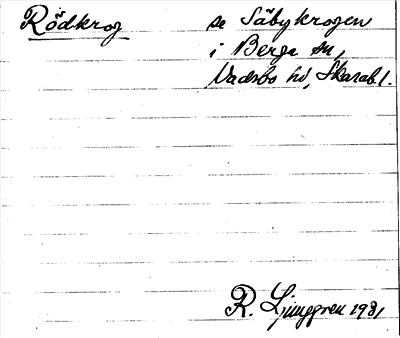 Rödkrog se Säbykrogen
i Berga sn,
Vadsbo hd, Skarab. l.
R. Ljunggren 1931